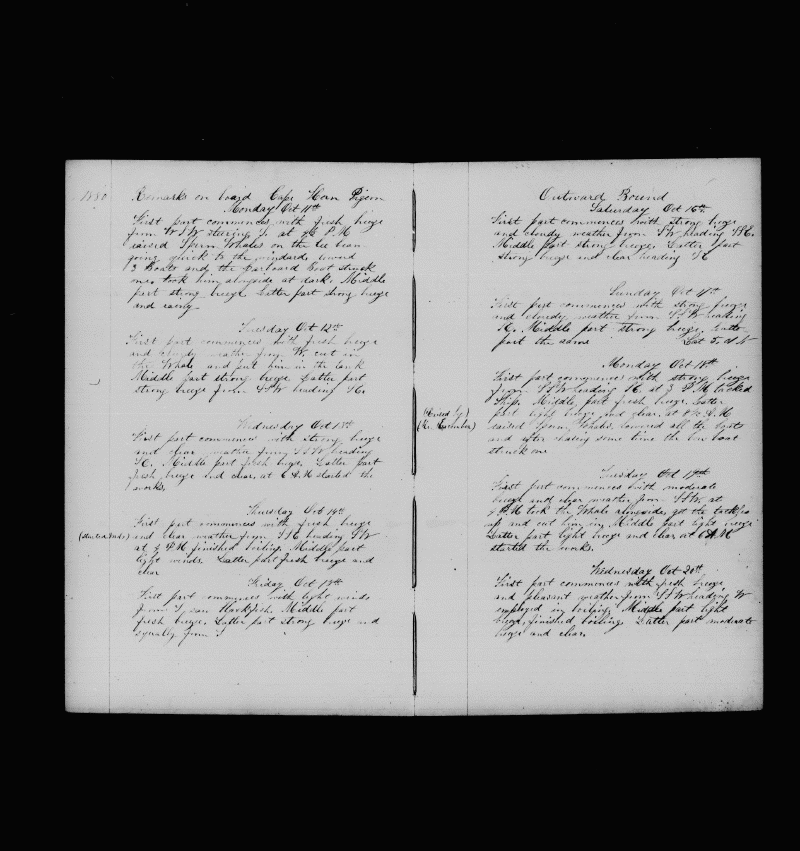 1880
Remarks on board Cape Horn Pigeon
Monday Oct 11th
First part commences with fresh breeze
from WSW steering S. at P.M
raised Sperm Whales on the lee beam
going quick to the windard lowerd
3 Boats and the larboard Boat struck
one, took him alongside at dark. Middle
part strong breeze Latter part strong breeze
and rainy.
Tuesday Oct 12th
First part commences with fresh breeze
and cloudy weather from W. cut in
the Whale and put him in the tank
Middle part strong breeze Latter part
strong breeze from heading
Wednesday Oct 13th
First part commences with strong breeze
and clear weather from SSW heading
Middle part fresh breeze. Latter part
fresh breeze and clear, at 6 A.M started the
works.
Thursday Oct 14th
First part commences with fresh breeze
and clear weather from heading SW
at P.M finished boiling. Middle part
light winds. Latter part fresh breeze and
clear
Friday Oct 15th
First part commences with light winds
from S, saw Blackfish. Middle part
fresh breeze. Latter part strong breeze and
squally from S
Outward Bound
Saturday Oct 16th
First part commences with strong breeze
and cloudy weather from SW heading
Middle part strong breeze. Latter part
strong breeze and clear heading
Sunday Oct 17th
First part commences with strong breeze
and cloudy weather from SSW heading
Middle part strong breeze. Latter
part the same Lat
Monday Oct 18th
First part commences with strong breeze
from SSW heading at P.M tacked
Ship. Middle part fresh breeze. Latter
part light breeze and clear, at A.M
raised Sperm Whales, lowered all the boats
and after chasing some time the bow boat
struck one
Tuesday Oct 19th
First part commences with moderate
breeze and clear weather from SSW. at
P.M took the Whale alongside, got the tackles
up and cut him in, Middle part light breeze
Latter part light breeze and clear at 6 A.M
started the works.
Wednesday Oct 20th
First part commences with fresh breeze
and pleasant weather from SSW heading W
employed in boiling, Middle part light
breeze, finished boiling. Latter part moderate
breeze and clear,